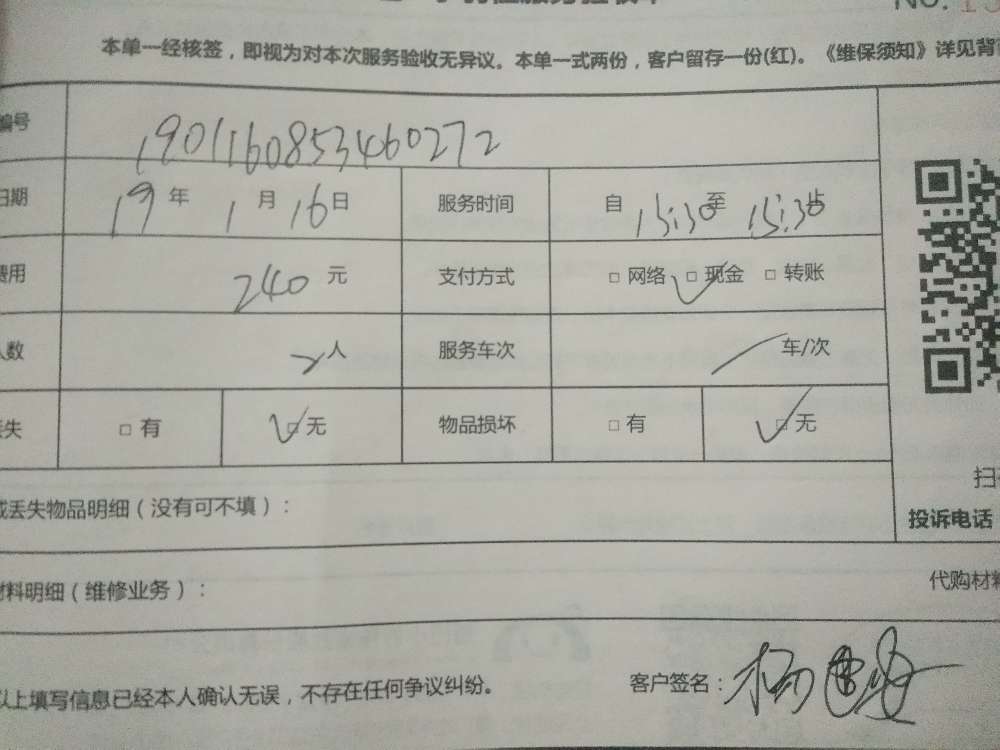 No.
本单一经核签，即视为对本次服务验收无异议。本单一式两份，客户留存一份(红)。《维保须知》详见背
编号 190116085346027​2
日期 19 年 1 月 16 日 服务时间 自 15:30 至
费用 240 元 支付方式 □ 网络 □ 现金 □ 转账
人数 人 服务车次 车/次
丢失 □ 有 □ 无 物品损坏 □ 有 □ 无
或丢失物品明细（没有可不填）：
投诉电话
材料明细（维修业务）： 代购材料
以上填写信息已经本人确认无误，不存在任何争议纠纷。
客户签名：杨